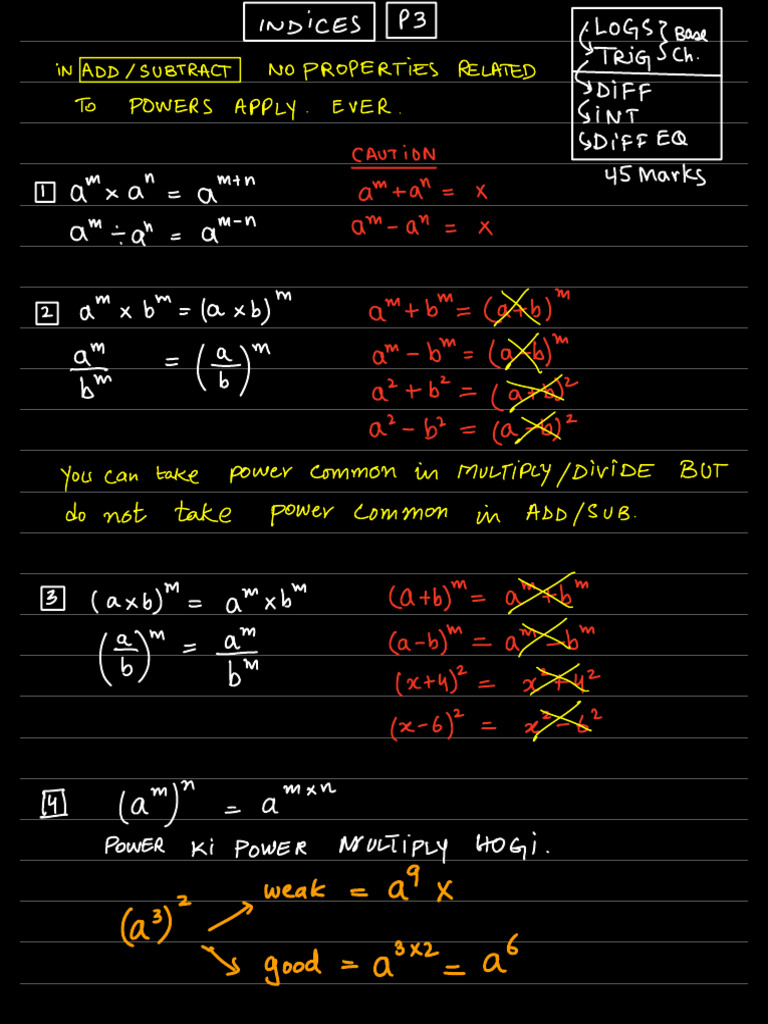 INDICES P3
LOGS } Base
TRIG } Ch.
DIFF
INT
DIFF EQ
45 Marks
IN ADD/SUBTRACT NO PROPERTIES RELATED
TO POWERS APPLY. EVER.
CAUTION
1 a^m × a^n = a^(m+n)
a^m + a^n = ×
a^m ÷ a^n = a^(m-n)
a^m - a^n = ×
2 a^m × b^m = (a × b)^m
a^m + b^m = (a+b)^m
a^m/b^m = (a/b)^m
a^m - b^m = (a-b)^m
a² + b² = (a+b)²
a² - b² = (a-b)²
You can take power common in MULTIPLY/DIVIDE BUT
do not take power common in ADD/SUB.
3 (a×b)^m = a^m × b^m
(a+b)^m = a^m + b^m
(a/b)^m = a^m/b^m
(a-b)^m = a^m - b^m
(x+4)² = x² + 4²
(x-6)² = x² - 6²
4 (a^m)^n = a^(m×n)
POWER KI POWER MULTIPLY HOGI.
(a³)²
weak = a⁹ ×
good = a^(3×2) = a⁶